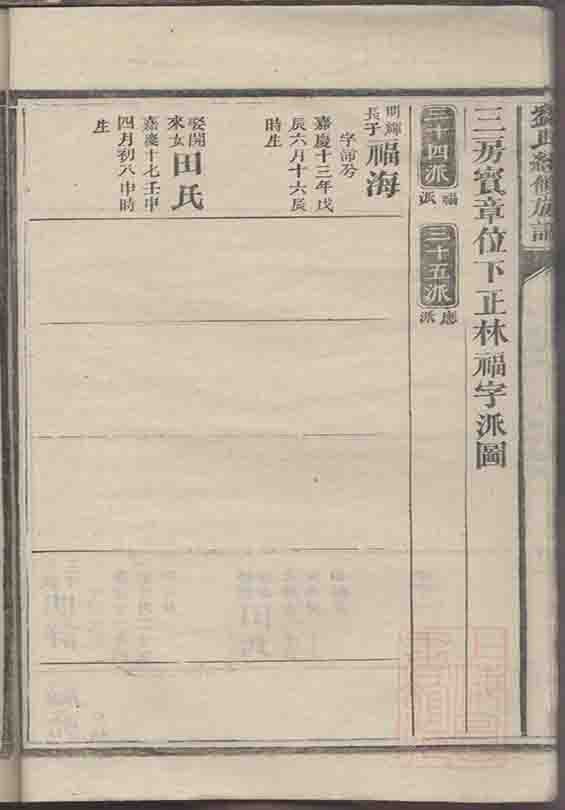 劉氏續修族譜
三房賓章位下正林福字派圖
三十四派
福派
三十五派
應派
明輝長子
福海
字沛兮
嘉慶十三年戊
辰六月十六辰
時生
娶開來女
田氏
嘉慶十七壬申
四月初八申時
生